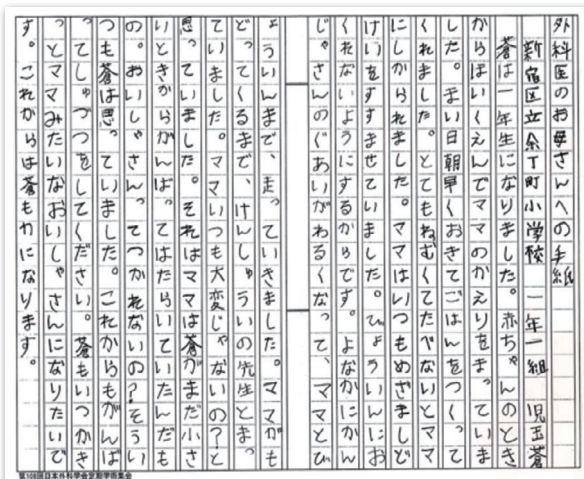 外科医のお母さんへの手紙
新宿区立余丁町小学校 一年一組 児玉蒼
蒼は一年生になりました。赤ちゃんのとき
からほいくえんでママのかえりをまっていま
した。まい日朝早くおきてごはんをつくって
くれました。とてもねむくてたべないとママ
にしかられました。ママはいつもめざましど
けいをすすませていました。びょういんにお
くれないようにするからです。よなかにかん
じゃさんのぐあいがわるくなって、ママとび
ょういんまで、走っていきました。ママがも
どってくるまで、けんしゅういの先生とまっ
ていました。ママいつも大変じゃないの?と
思っていました。それはママは蒼がまだ小さ
いときからがんばってはたらいていたんだも
の。おいしゃさんってつかれないの?そうい
つも蒼は思っていました。これからもがんば
ってしゅづつをしてください。蒼もいつかき
っとママみたいなおいしゃさんになりたいで
す。これからは蒼もわになります。
第108回日本外科学会定期学術集会